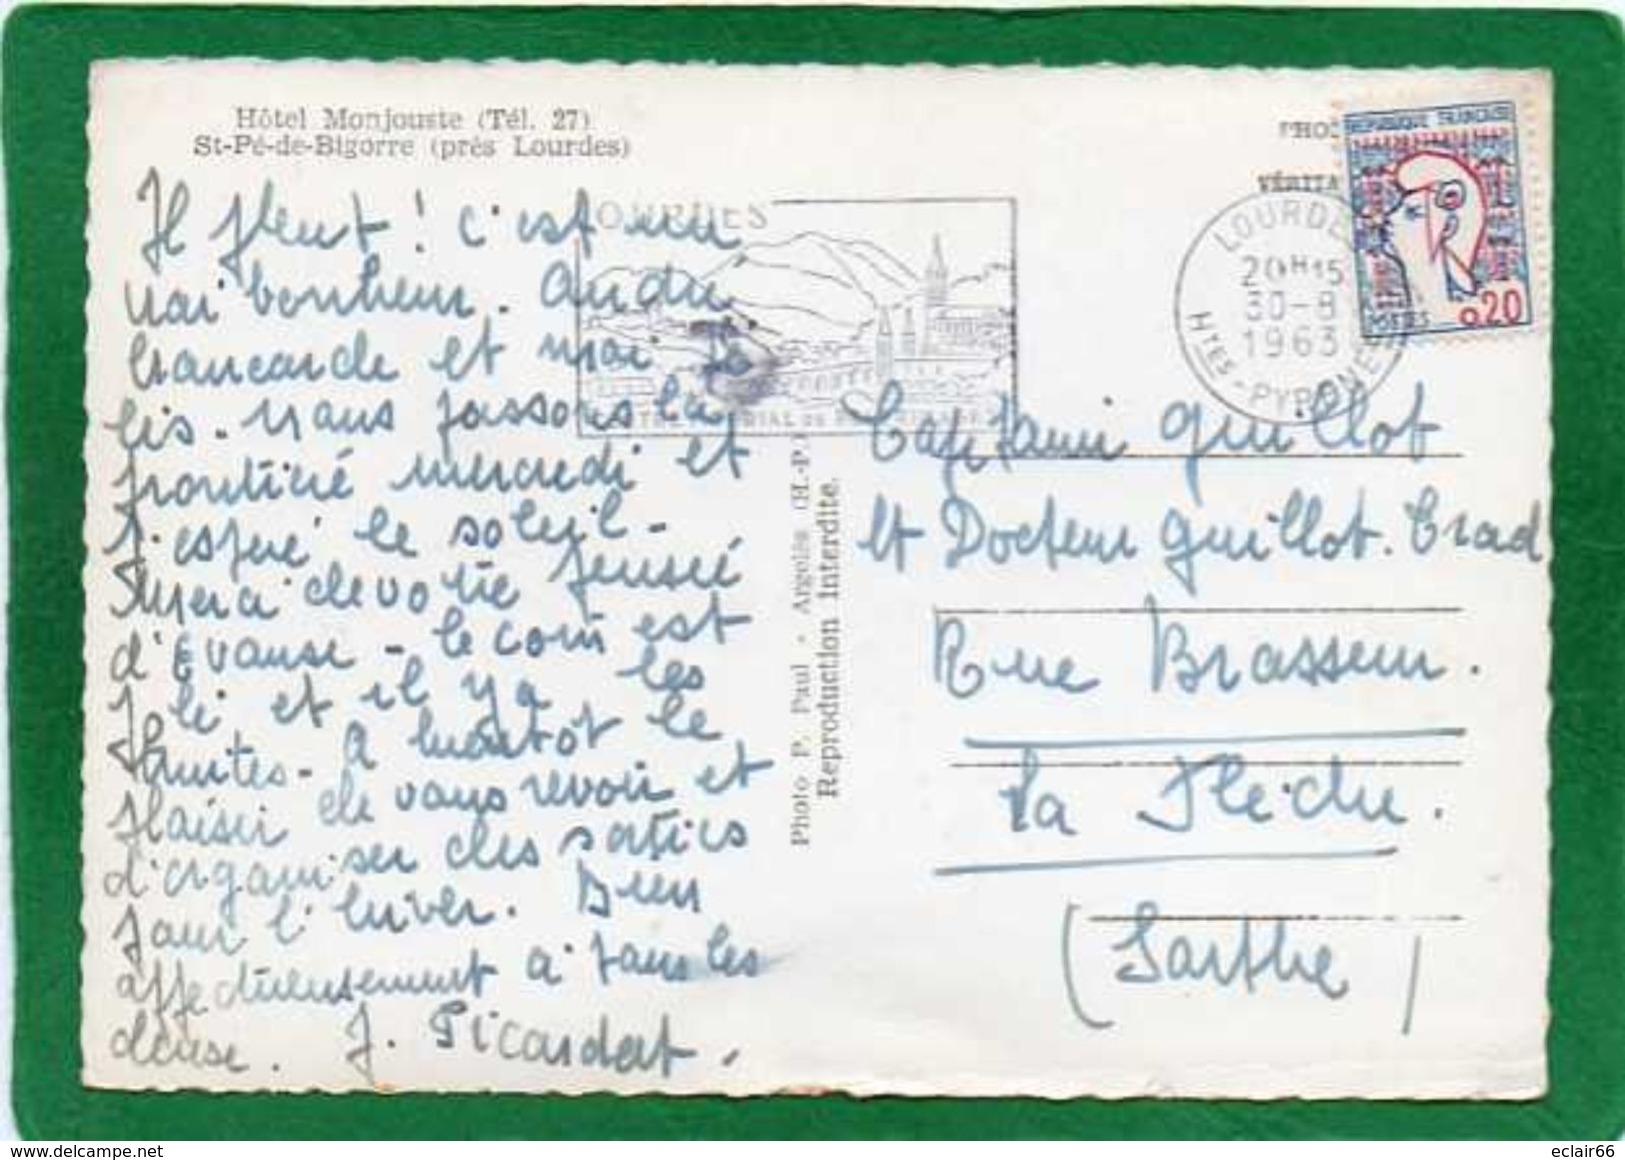 Hôtel Monjouste (Tél. 27)
St-Pé-de-Bigorre (près Lourdes)
Il pleut ! c'est un
vrai bonheur. André
brancarde et moi je
lis. nous passons la
frontière mercredi et
j'espère le soleil -
Merci de votre pensée
d'Evause - le coin est
joli et il y a les
truites - A bientôt le
plaisir de vous revoir et
d'organiser des sorties
pour l'hiver. Bien
affectueusement à tous les
deux. J. Picardat.
Photo P. Paul - Argelès (H.-P.)
Reproduction Interdite.
LOURDES
20H15
30-8
1963
Htes-PYRÉNÉES
REPUBLIQUE FRANÇAISE
POSTES 0,20
Capitaine Guillot
et Docteur Guillot. Crad
Rue Brasseur.
La Flèche.
(Sarthe)
eclair66